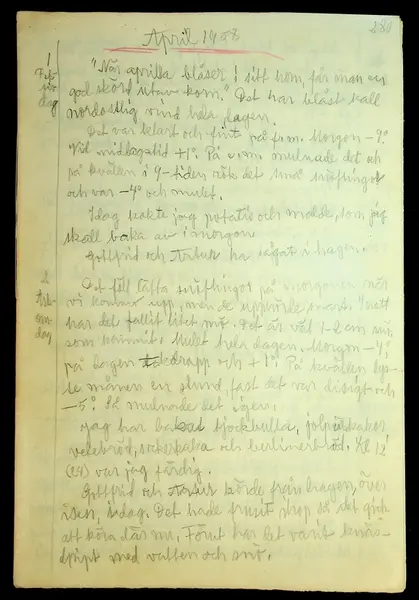 April 1958
1
"När aprilla blåser i sitt horn, får man en
god skörd utav korn." Det har blåst kall
nordostlig vind hela dagen.
Det var klart och fint på f.m. Morgon -9°
Vid middagstid +1°. På e.m. mulnade det och
på kvällen i 9-tiden rök det små snöflingor
och var -4° och mulet.
Idag kokte jag potatis och mälde, som jag
skall baka av i morgon
Gottfrid och Artur ha sågat i hagen.
2
Det föll lätta snöflingor på morgonen när
vi kommo upp, men de upphörde snart. I natt
har det fallit litet snö. Det är väl 1-2 cm snö,
som kommit. Mulet hela dagen. Morgon -4°
på dagen takdropp och +1°. På kvällen lys-
te månen en stund, fast det var disigt och
-5°. Så mulnade det igen.
Jag har bakat tjockbulla,
vetebröd, sockerkaka och berlinerbröd. Kl 12
(24) var jag färdig.
Gottfrid och Artur körde från hagen, över
isen, idag. Det hade frusit ihop så det gick
att köra där nu. Förut har det varit knäs-
djupt med vatten och snö.